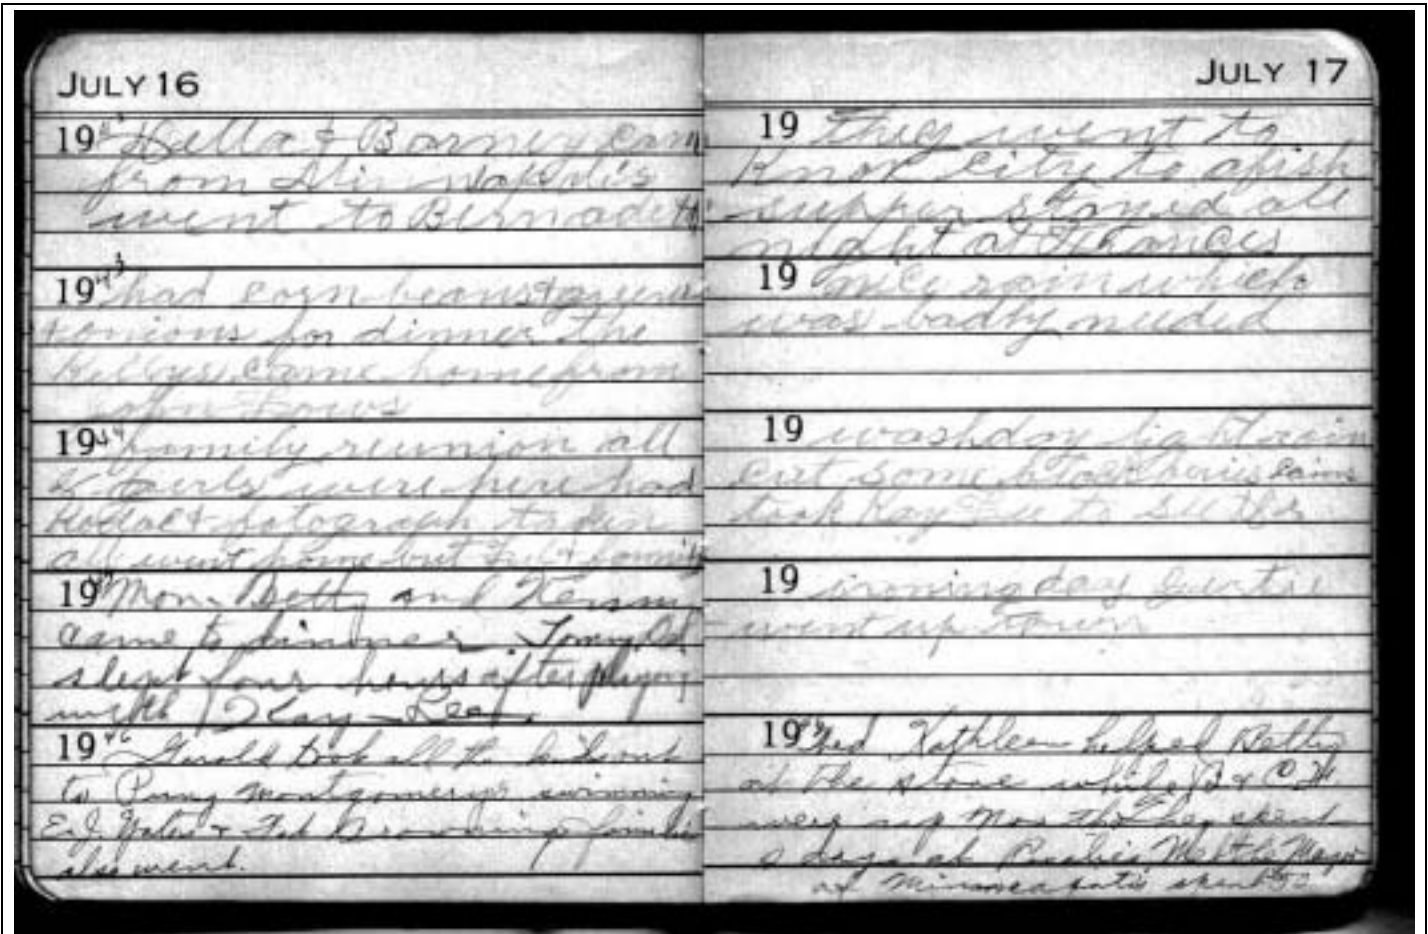 JULY 16
19 42 Hella & Barney cam
from Minnapolis
went to Bernadett
19 43 had corn beans &
& onions for dinner the
Kellys came home from
john
19 44 family reunion all
K were here had
Kodac & fotograph taken
all went home but & famil
19 45 Mon. Betty and Kenny
came to dinner Tommy
slept four hours after playing
with Kay Lea.
19 46 Gerald took all the kids out
to Perry Montgomery's swimming
E.J. & Ted Browning familie
also went.
JULY 17
19 they went to
Knox City to a fish
supper stayed all
night at Francis
19 nice rain which
was badly needed
19 washday light rain
cut some came
took Kay to see
19 ironing day
went up town
19 46 Wed Kathleen helped Betty
at the store while B & C H
were up North They spent
days at
at Minneapolis spent